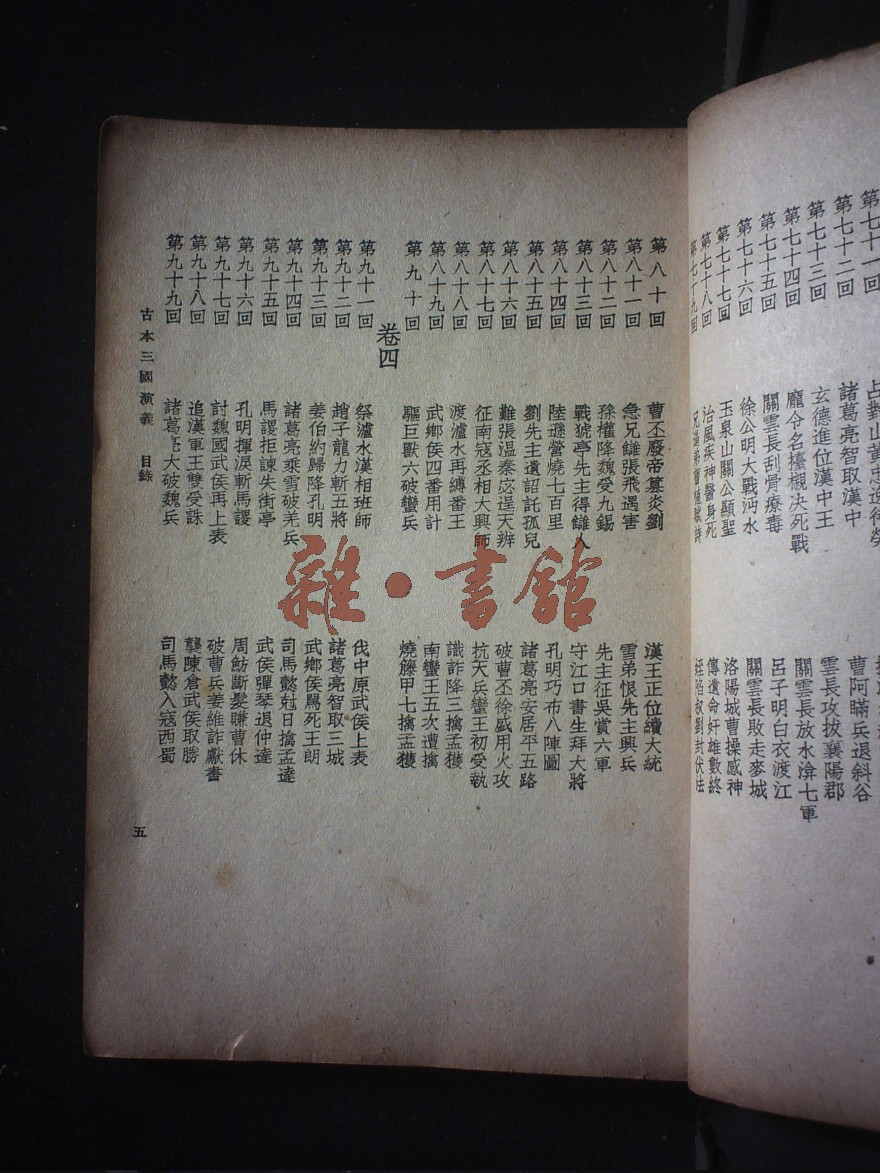 第七十一回 占對山黃忠逸待勞
第七十二回 諸葛亮智取漢中 曹阿瞞兵退斜谷
第七十三回 玄德進位漢中王 雲長攻拔襄陽郡
第七十四回 龐令名擡櫬決死戰 關雲長放水渰七軍
第七十五回 關雲長刮骨療毒 呂子明白衣渡江
第七十六回 徐公明大戰沔水 關雲長敗走麥城
第七十七回 玉泉山關公顯聖 洛陽城曹操感神
第七十八回 治風疾神醫身死 傳遺命奸雄數終
第七十九回 兄逼弟曹植賦詩 姪陷叔劉封伏法
第八十回 曹丕廢帝篡炎劉 漢王正位續大統
第八十一回 急兄讎張飛遇害 雪弟恨先主興兵
第八十二回 孫權降魏受九錫 先主征吳賞六軍
第八十三回 戰猇亭先主得讎人 守江口書生拜大將
第八十四回 陸遜營燒七百里 孔明巧布八陣圖
第八十五回 劉先主遺詔託孤兒 諸葛亮安居平五路
第八十六回 難張溫秦宓逞天辨 破曹丕徐盛用火攻
第八十七回 征南寇丞相大興師 抗天兵蠻王初受執
第八十八回 渡瀘水再縛番王 識詐降三擒孟獲
第八十九回 武鄉侯四番用計 南蠻王五次遭擒
第九十回 驅巨獸六破蠻兵 燒籐甲七擒孟獲
卷四
第九十一回 祭瀘水漢相班師 伐中原武侯上表
第九十二回 趙子龍力斬五將 諸葛亮智取三城
第九十三回 姜伯約歸降孔明 武鄉侯罵死王朗
第九十四回 諸葛亮乘雪破羌兵 司馬懿尅日擒孟達
第九十五回 馬謖拒諫失街亭 武侯彈琴退仲達
第九十六回 孔明揮淚斬馬謖 周魴斷髮賺曹休
第九十七回 討魏國武侯再上表 破曹兵姜維詐獻書
第九十八回 追漢軍王雙受誅 襲陳倉武侯取勝
第九十九回 諸葛亮大破魏兵 司馬懿入寇西蜀
古本三國演義 目錄
五
雜·書館